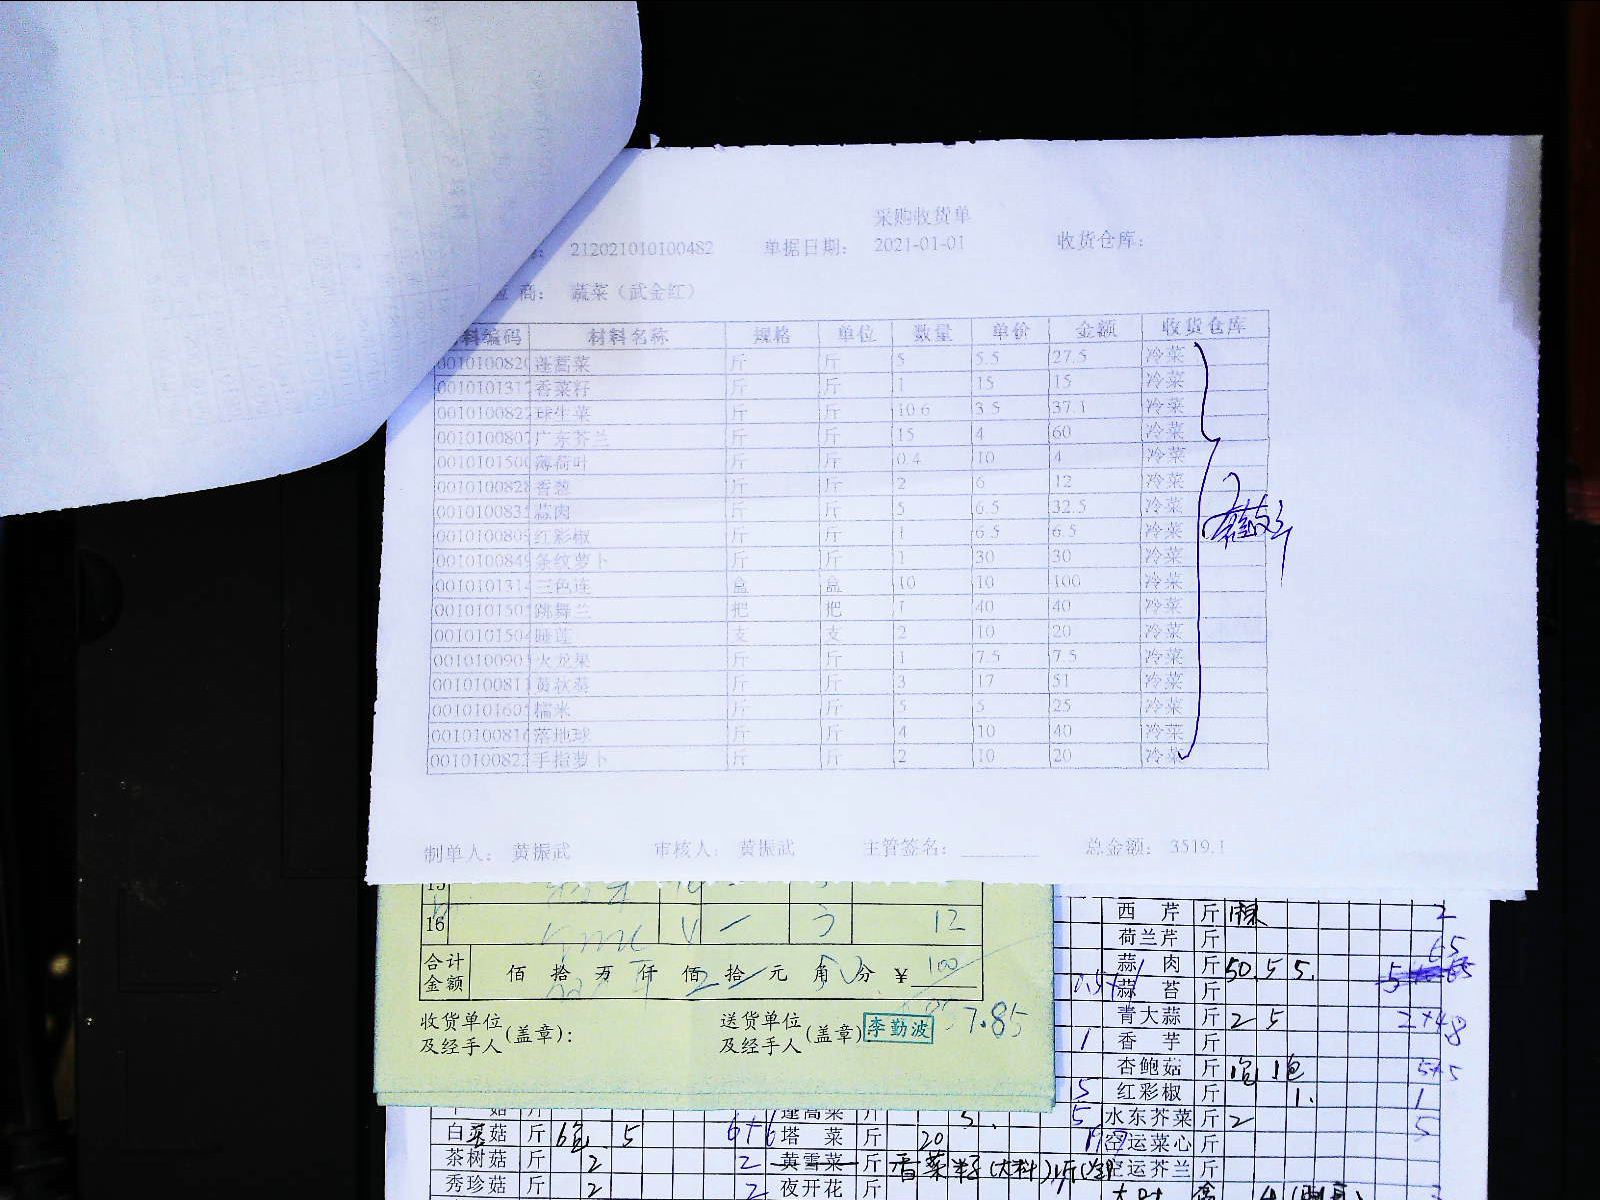 采购收货单
212021010100482 单据日期: 2021-01-01 收货仓库:
商: 蔬菜（武金红）
料编码 材料名称 规格 单位 数量 单价 金额 收货仓库
001010082 蓬蒿菜 斤 斤 5 5.5 27.5 冷菜
001010131 香菜籽 斤 斤 1 15 15 冷菜
001010082 球生菜 斤 斤 10.6 3.5 37.1 冷菜
001010080 广东芥兰 斤 斤 15 4 60 冷菜
001010150 薄荷叶 斤 斤 0.4 10 4 冷菜
001010082 香葱 斤 斤 2 6 12 冷菜
001010083 蒜肉 斤 斤 5 6.5 32.5 冷菜
001010080 红彩椒 斤 斤 1 6.5 6.5 冷菜
001010084 条纹萝卜 斤 斤 1 30 30 冷菜
001010131 三色连 盒 盒 10 10 100 冷菜
001010150 跳舞兰 把 把 1 40 40 冷菜
001010150 睡莲 支 支 2 10 20 冷菜
001010090 火龙果 斤 斤 1 7.5 7.5 冷菜
001010081 黄秋葵 斤 斤 3 17 51 冷菜
001010160 糯米 斤 斤 5 5 25 冷菜
001010081 落地球 斤 斤 4 10 40 冷菜
001010082 手指萝卜 斤 斤 2 10 20 冷菜
制单人: 黄振武 审核人: 黄振武 主管签名: 总金额: 3519.1
15
16 12
合计金额 佰 拾 万 仟 佰 拾 元 角 分 ￥ 100
7.85
收货单位及经手人(盖章): 送货单位及经手人(盖章): 李勤波
西芹 斤 2
荷兰芹 斤
蒜肉 斤 50. 5 5. 65
蒜苔 斤
青大蒜 斤 2 5 2+48
1 香芋 斤
杏鲍菇 斤 1包 1包 5+5
5 红彩椒 斤 1. 1
菇 斤 蓬蒿菜 斤 5. 5 水东芥菜 斤 2 5
白菇 斤 6包 5 6+6 塔菜 斤 20 空运菜心 斤
茶树菇 斤 2 2 黄雪菜 斤 香菜籽(大料)1斤 空运芥兰 斤
秀珍菇 斤 2 2 夜开花 斤